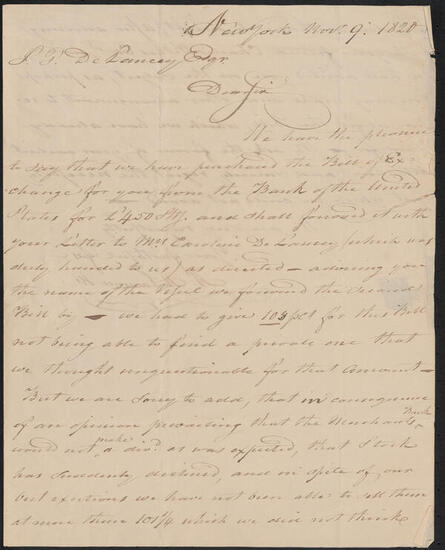 New York Nov. 9. 1820
J. P. De Lancey Esqr
Dear Sir
We have the pleasure
to say that we have purchased the Bill of Ex-
change for you from the Bank of the United
States for £450 Stg. and shall forward it with
your Letter to Mrs Caroline De Lancey (which was
duly handed to us) as directed — advising you
the name of the Vessel we forward the Second
Bill by — we had to give 103 pct for this Bill
not being able to find a private one that
we thought unquestionable for that Amount —
But we are sorry to add, that in consequence
of an opinion prevailing that the Merchants Bank
would not make a divd. as was expected, that Stock
has suddenly declined, and in spite of our
best exertions we have not been able to sell them
at more than 101¼ which we did not think